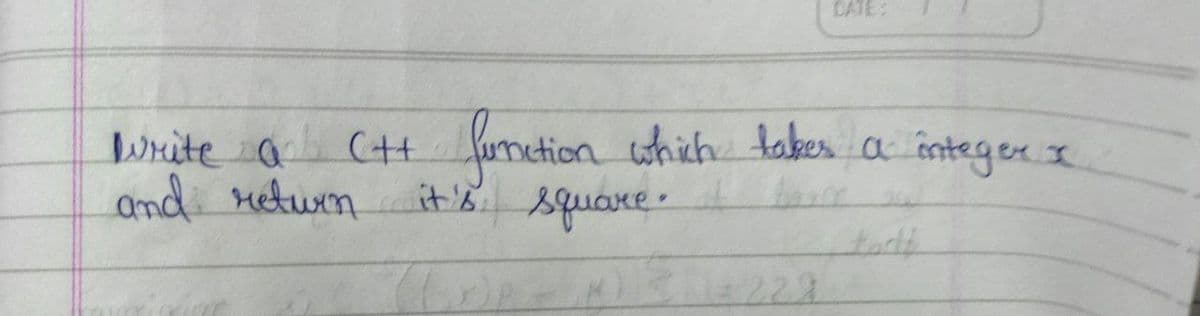 DATE:
Write a C++ function which takes a integer x
and return it's square.